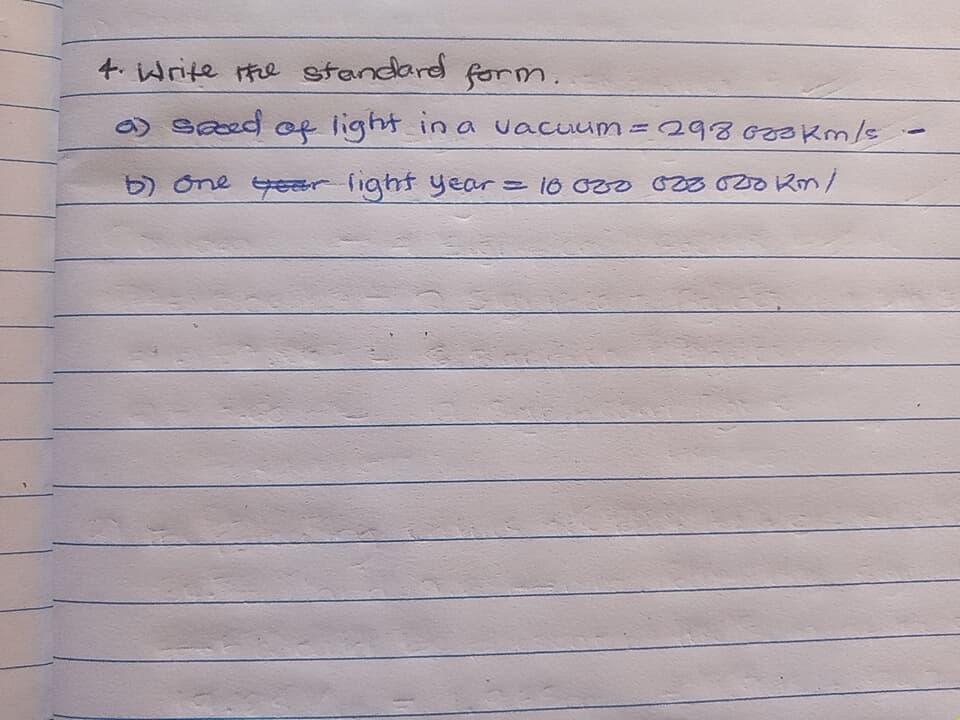 4. Write the standard form.
a) speed of light in a vacuum = 298 000 km/s -
b) one year light year = 10 000 000 000 km/